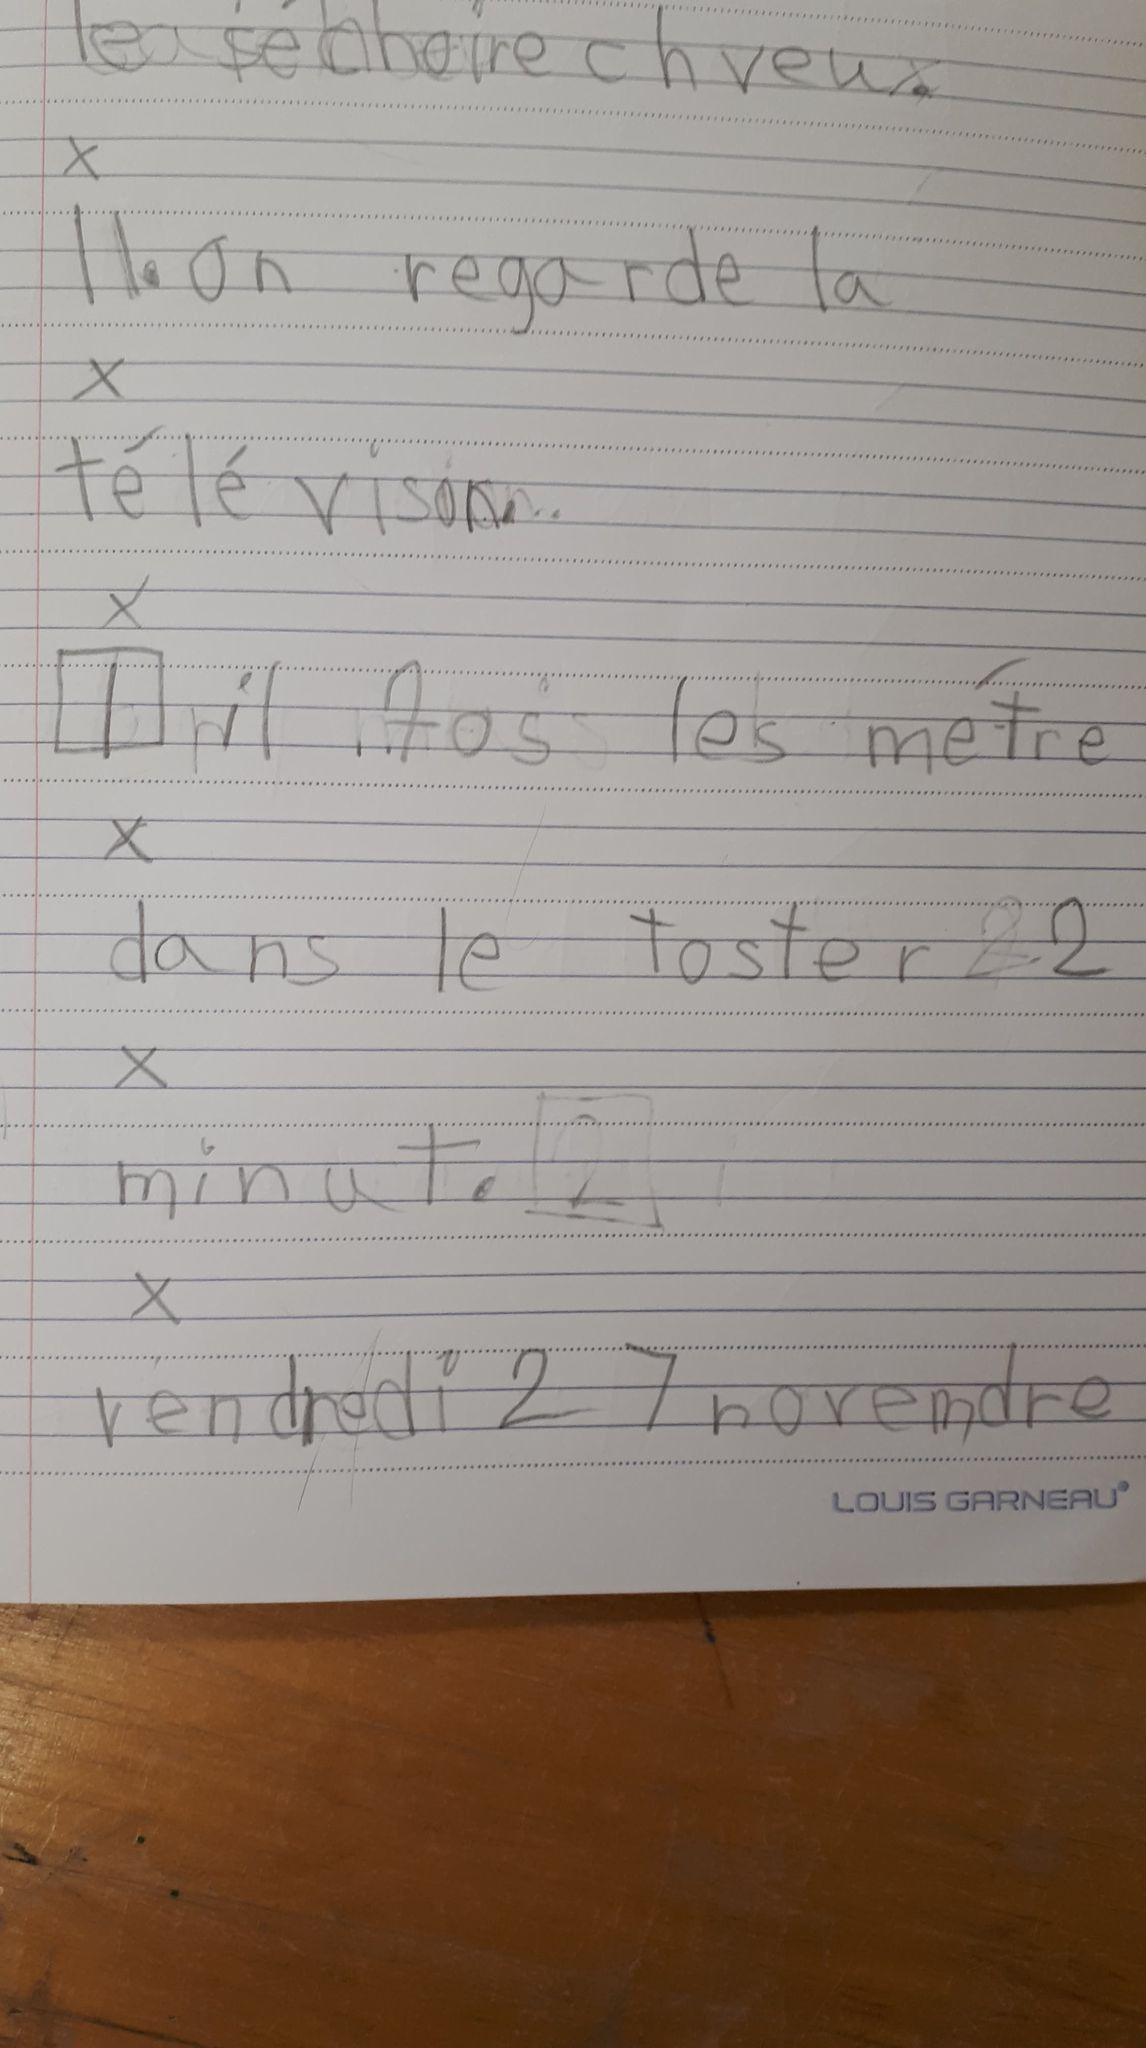 séchoire chveux
x
11. On regarde la
x
télévison.
x
1 il les métre
x
dans le toster 2
x
minut. 2
x
vendredi 27 novemdre
LOUIS GARNEAU